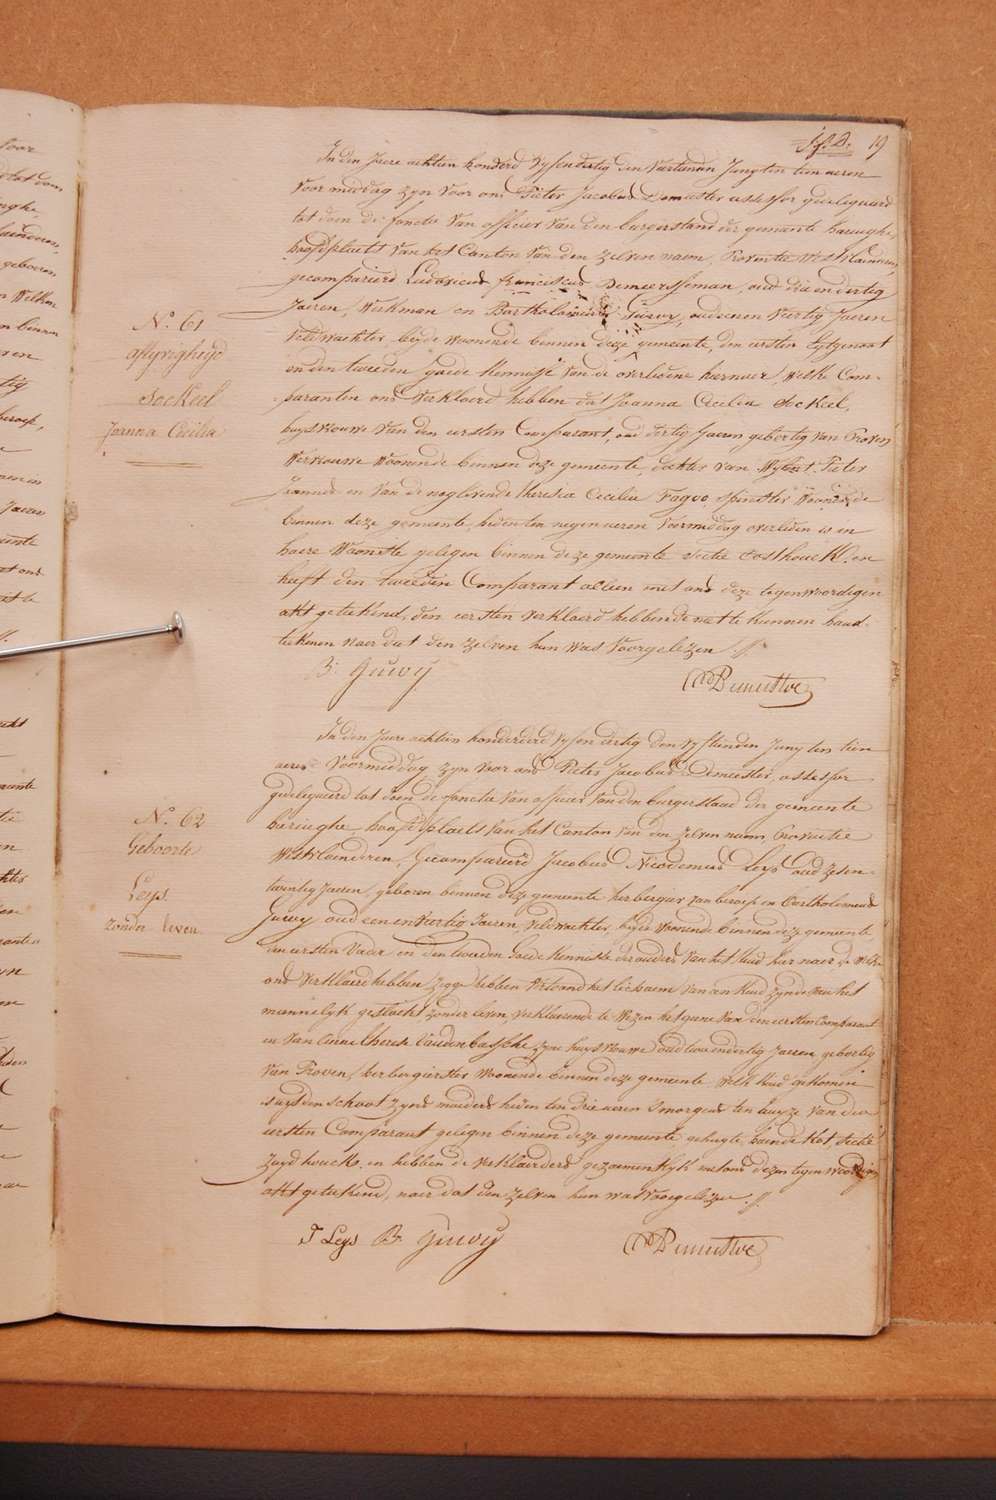 19
In den Jaere achtien honderd vyfendertig den veertienden Juny ten tien ueren
voormiddag zyn voor ons Pieter Jacobus Demeester assessor gedelegueerd
tot doen de functie van officier van den burgerstand der gemeente haringhe,
hoofdplaets van het Canton van den zelven naem, Provintie Westvlaenderen,
gecompareerd Ludovicus franciscus Demeersseman, oud drie en dertig
Jaeren, Werkman en Bartholomeus Juwy, oud eenen veertig Jaeren
veldwachter beyde woonende binnen deze gemeente, den eersten Echtgenoot
en den tweeden goede kennisse van de overledene hiernaer, welke Com-
paranten ons verklaerd hebben dat Joanna Cecilia Sockeel,
huysvrouwe van den eersten Comparant, oud dertig Jaeren gebortig van Proven
Werkvrouwe woonende binnen deze gemeente, dochter van wylent Pieter
Joannes en van de noglevende Theresia Cecilia Fagoo, spinster woonende
binnen deze gemeente, heden ten negen ueren voormiddag overleden is in
haere Woonste gelegen binnen deze gemeente sectie oosthouck. en
heeft den tweeden Comparant alleen met ons deze tegenwoordigen
akt geteekend, den eersten verklaerd hebbende niet te kunnen hand-
teekenen naer dat den zelven hun was voorgelezen.
B: Juwy
PDemeester
No. 61
aflyvigheyd
Sockeel
Joanna Cecilia
In den Jaere achtien honderd vyfendertig den vyftienden Juny ten tien
ueren voormiddag zyn voor ons Pieter Jacobus Demeester, assessor
gedelegueerd tot doen de functie van officier van den burgerstand der gemeente
haringhe hoofdplaets van het Canton van den zelven naem, Provintie
Westvlaenderen, Gecompareerd Jacobus Nicodemus Leys oud zesen-
twintig Jaeren, geboren binnen deze gemeente herbergier van beroep en Bartholomeus
Juwy oud een en veertig Jaeren, veldwachter, beyde woonende binnen deze gemeente,
den eersten Vader en den tweeden Goede kennisse der ouders van het kind hier naer de welke
ons verklaerd hebben zegge hebben vertoond het lichaem van een kind zynde van het
mannelyk geslacht zonder leven, verklaerende te wezen het gene van den eersten Comparant
en van Anne Therese Vandenbassche zyne huysvrouwe oud twee en dertig Jaeren gebortig
van Proven, herbergierster woonende binnen deze gemeente welk kind gekomen
is uyt den schoot zyns moeders heden ten drie ueren smorgens ten huyze van den
eersten Comparant gelegen binnen deze gemeente, gehugte, sectie
Zuydhoucke. en hebben de verklaerders gezamentlyk met ons dezen tegenwoordigen
akt geteekend, naer dat den zelven hun was voorgelezen.
J Leys B: Juwy
PDemeester
No. 62
Geboorte
Leys.
zonder leven.